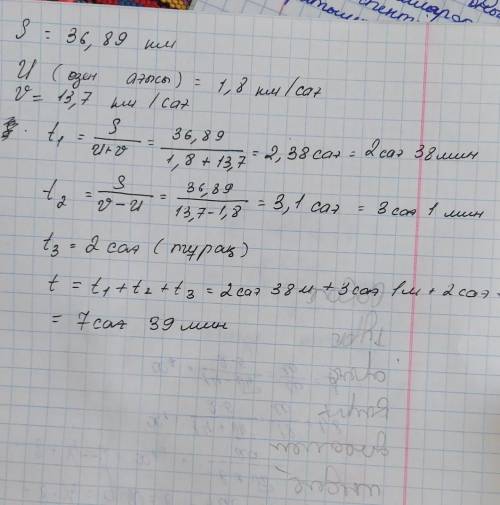 S = 36,89 км
U (өзен ағысы) = 1,8 км/сағ
V = 13,7 км/сағ
t₁ = S/(U+V) = 36,89/(1,8 + 13,7) = 2,38 сағ = 2 сағ 38 мин
t₂ = S/(V-U) = 36,89/(13,7-1,8) = 3,1 сағ = 3 сағ 1 мин
t₃ = 2 сағ (тұрақ)
t = t₁ + t₂ + t₃ = 2 сағ 38 м + 3 сағ 1 м + 2 сағ
= 7 сағ 39 мин